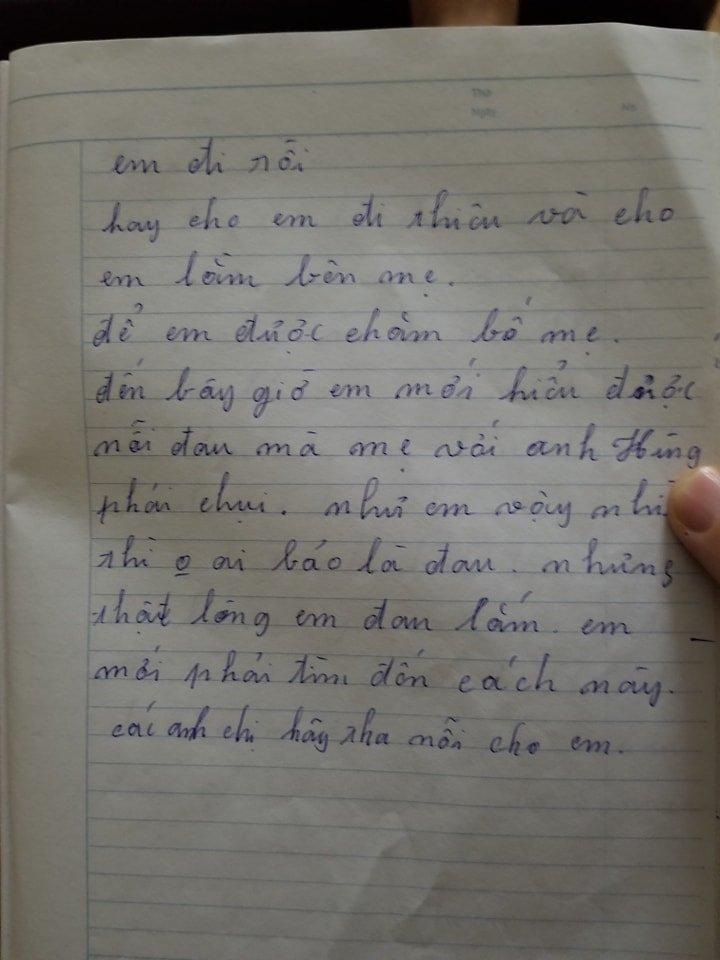 Thứ
Ngày No.
em đi rồi
hay cho em đi thiêu và cho
em lằm bên mẹ.
để em được chăm bố mẹ.
đến bây giờ em mới hiểu được
nỗi đau mà mẹ với anh Hùng
phải chịu. như em vậy
thì o ai bảo là đau. nhưng
thật lòng em đau lắm. em
mới phải tìm đến cách này.
các anh chị hãy tha nỗi cho em.